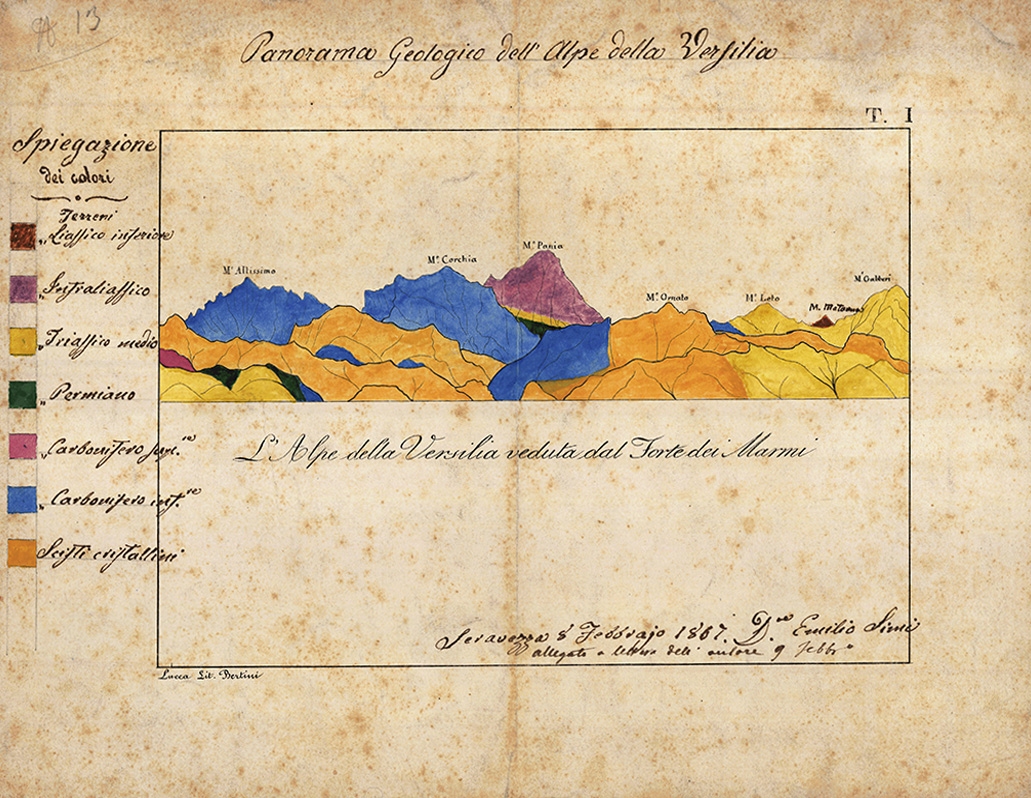 A 13
Panorama Geologico dell' Alpe della Versilia
T. I
Spiegazione
dei colori
Terreni
„ Liassico inferiore
„ Infraliassico
„ Triassico medio
„ Permiano
„ Carbonifero sup.re
„ Carbonifero inf.re
Scisti cristallini
Mᵉ Altissimo
Mᵉ Corchia
Mᵉ Pania
Mᵉ Ornato
Mᵉ Leto
M. Matanna
Mᵉ Gabberi
L'Alpe della Versilia veduta dal Forte dei Marmi
Seravezza 8 Febbrajo 1867. D.re Emilio Simi
allegato a lettera dell' autore 9 febb°
Lucca Lit. Bertini